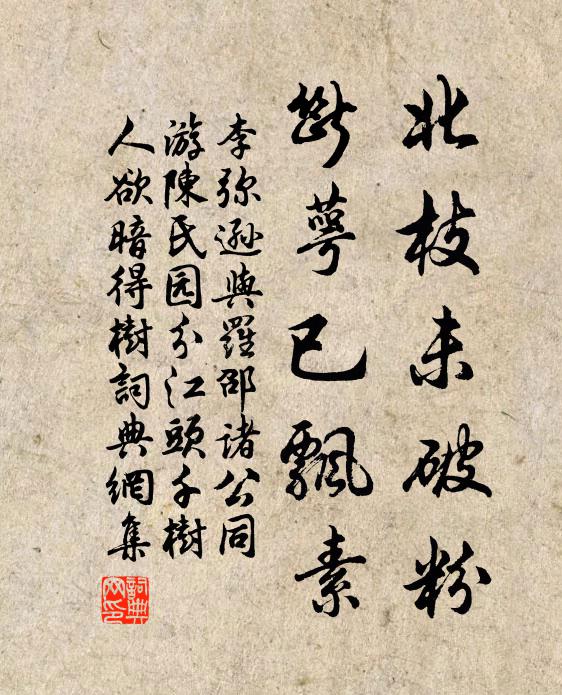 北枝未破粉
斷萼已飄素
李弥遜與羅邵諸公同
游陳氏园分江頭千樹
人欲暗得樹詞典網集
詞典网印